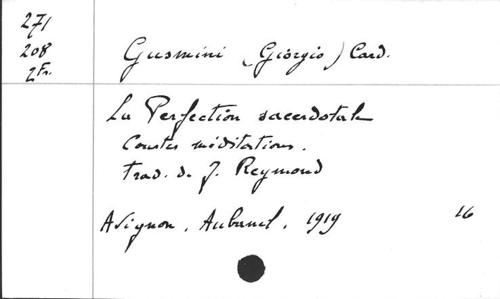 271
208
2 Fr.
Gusmini (Giorgio) Card.
La Perfection sacerdotale
Courtes méditations.
Trad. de J. Reymond
Avignon, Aubanel, 1919 16